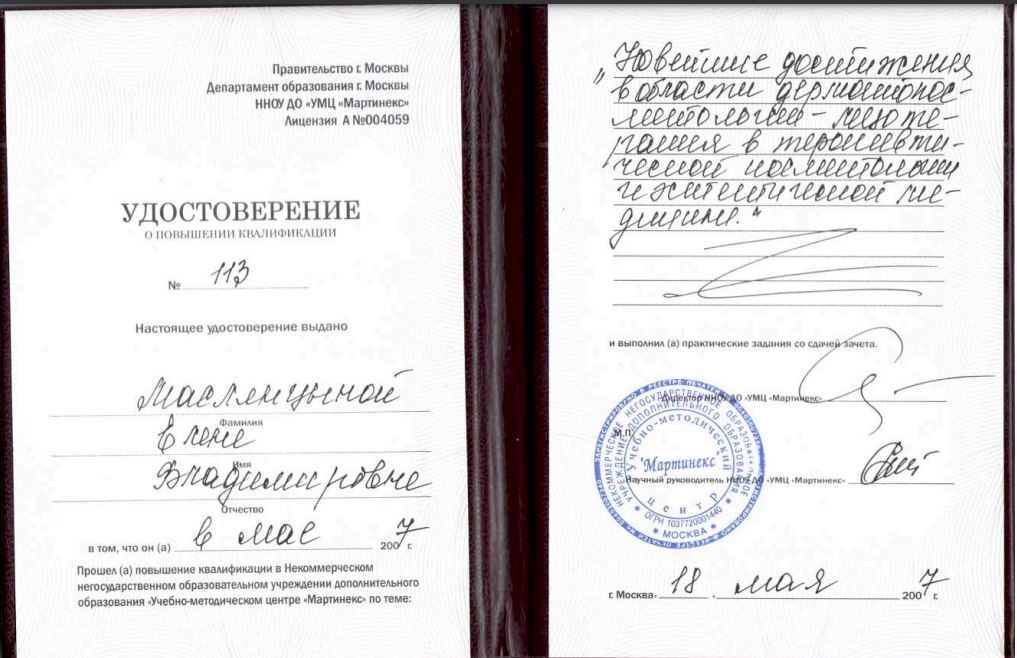 Правительство г. Москвы
Департамент образования г. Москвы
ННОУ ДО «УМЦ «Мартинекс»
Лицензия А №004059
УДОСТОВЕРЕНИЕ
О ПОВЫШЕНИИ КВАЛИФИКАЦИИ
№ 113
Настоящее удостоверение выдано
Маслянцыной
Фамилия
Елене
Имя
Владимировне
Отчество
в том, что он (а) в мае 2007 г.
Прошел (а) повышение квалификации в Некоммерческом
негосударственном образовательном учреждении дополнительного
образования «Учебно-методическом центре «Мартинекс» по теме:
„Новейшие достижения
в области дерматокос-
метологии - мезоте-
рапия в терапевти-
ческой косметологии
и эстетической ме-
дицине."
и выполнил (а) практические задания со сдачей зачета.
Директор ННОУ ДО «УМЦ «Мартинекс»
М.П.
Научный руководитель ННОУ ДО «УМЦ «Мартинекс»
НЕКОММЕРЧЕСКОЕ НЕГОСУДАРСТВЕННОЕ ОБРАЗОВАТЕЛЬНОЕ
УЧРЕЖДЕНИЕ ДОПОЛНИТЕЛЬНОГО ОБРАЗОВАНИЯ
Учебно-методический
"Мартинекс"
центр
ОГРН 1037720001440
* МОСКВА *
г. Москва- 18 - мая 2007 г.